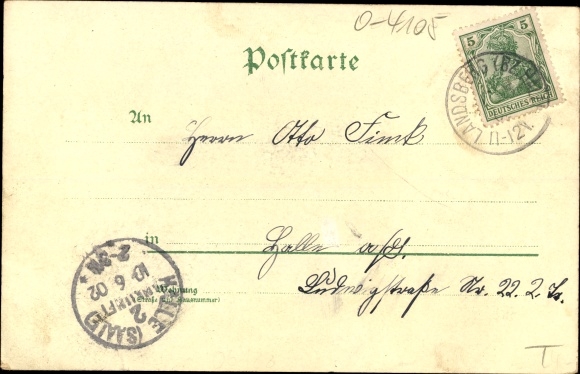 0-4105
5 5
DEUTSCHES REICH
LANDSBERG (BZ.
11-12V
Postkarte
An
Herrn Otto Finck
in
Halle a/S.
Wohnung
(Straße und Hausnummer)
Ludwigstraße Nr. 22. 2 Tr.
HALLE (SAALE)
2
10 6 02
2-3N
T